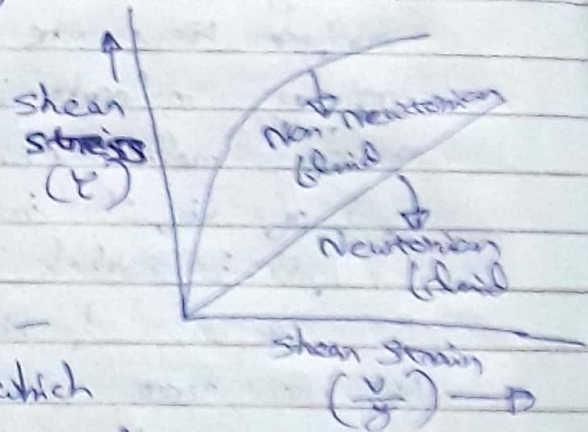 Shear
stress
(τ)
Non-Newtonian
fluid
Newtonian
fluid
which
Shear strain
(v/y)